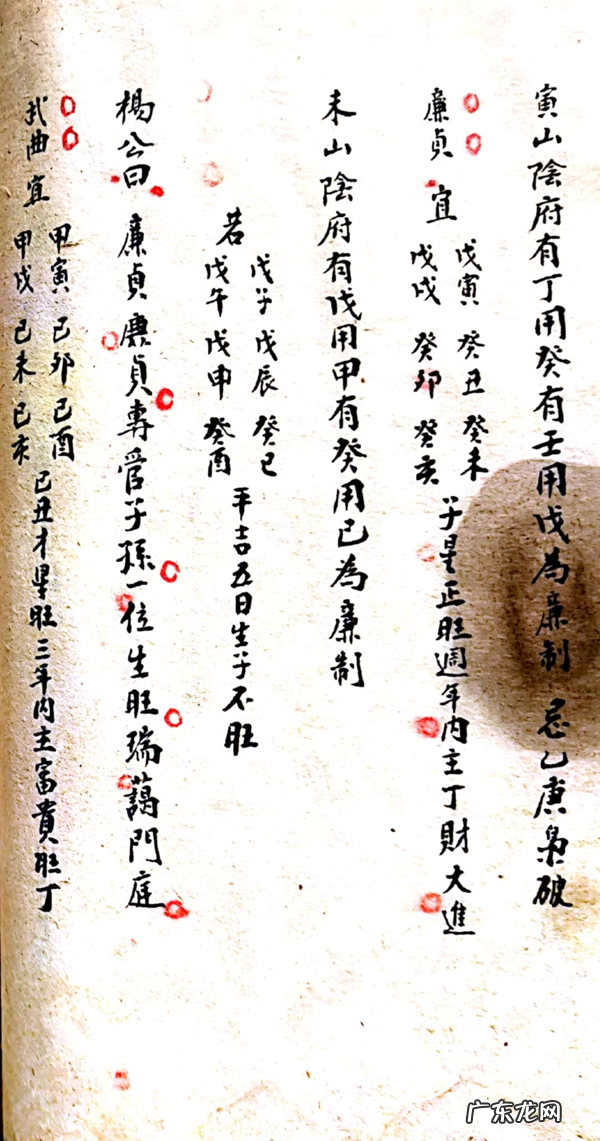 寅山陰府有丁用癸有壬用戊為廉制 忌乙庚梟破
廉貞 宜 戊寅 癸丑 癸未 戊戌 癸卯 癸亥 子星正旺週年内主丁財大進
未山陰府有戊用甲有癸用己為廉制
若 戊子 戊辰 癸巳 戊午 戊申 癸酉 平吉五日生子不旺
楊公曰 廉貞廉貞專管子孫一位生旺瑞藹門庭
武曲 宜 甲寅 己卯 己酉 甲戌 己未 己亥 己丑才星旺三年内主富貴旺丁
广东龙网